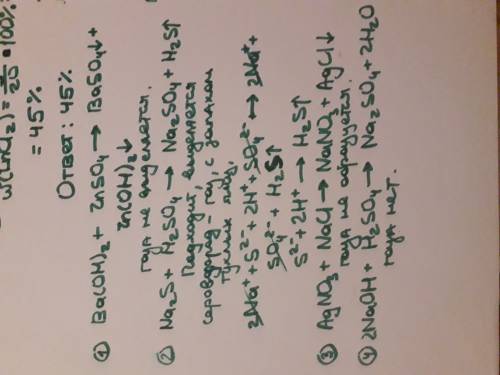 w(ZnCl₂) = 9/20 · 100% =
= 45%
Ответ: 45%
① Ba(OH)₂ + ZnSO₄ → BaSO₄↓ +
Zn(OH)₂↓
газ не выделяется.
② Na₂S + H₂SO₄ → Na₂SO₄ + H₂S↑
Подходит, выделяется
сероводород – газ, с запахом
тухлых яиц.
2Na⁺ + S²⁻ + 2H⁺ + SO₄²⁻ ↔ 2Na⁺ +
SO₄²⁻ + H₂S↑
S²⁻ + 2H⁺ → H₂S↑
③ AgNO₃ + NaCl → NaNO₃ + AgCl↓
газ не образуется.
④ 2NaOH + H₂SO₄ → Na₂SO₄ + 2H₂O
газа нет.